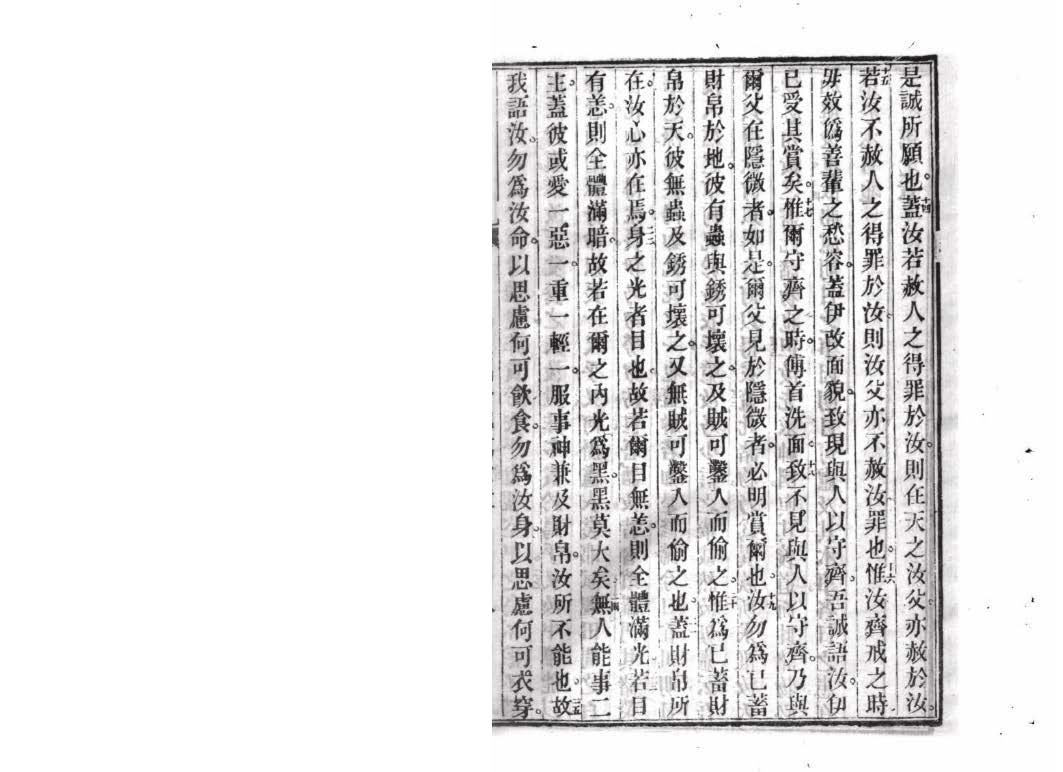 是誠所願也。十四蓋汝若赦人之得罪於汝。則在天之汝父亦赦於汝。
十五若汝不赦人之得罪於汝則汝父亦不赦汝罪也。十六惟汝齊戒之時
毋效僞善輩之愁容。蓋伊改面貌。致現與人以守齊。吾誠語汝。伊
已受其賞矣。十七惟爾守齊之時。傅首洗面。十八致不見與人以守齊。乃與
爾父在隱微者。如是。爾父見於隱微者。必明賞爾也。十九汝勿爲已蓄
財帛於地。彼有蟲與銹可壞之。及賊可鑿入而偷之。二十惟爲已蓄財
帛於天。彼無蟲及銹可壞之。又無賊可鑿入而偷之也。蓋財帛所
在。汝心亦在焉。身之光者目也。故若爾目無恙。則全體滿光。若目
有恙。則全體滿暗。故若在爾之內光爲黑。黑莫大矣。二四無人能事二
主。蓋彼或愛一惡一。重一輕一。服事神兼及財帛。汝所不能也。二五故
我語汝。勿爲汝命。以思慮何可飲食。勿爲汝身。以思慮何可衣穿。